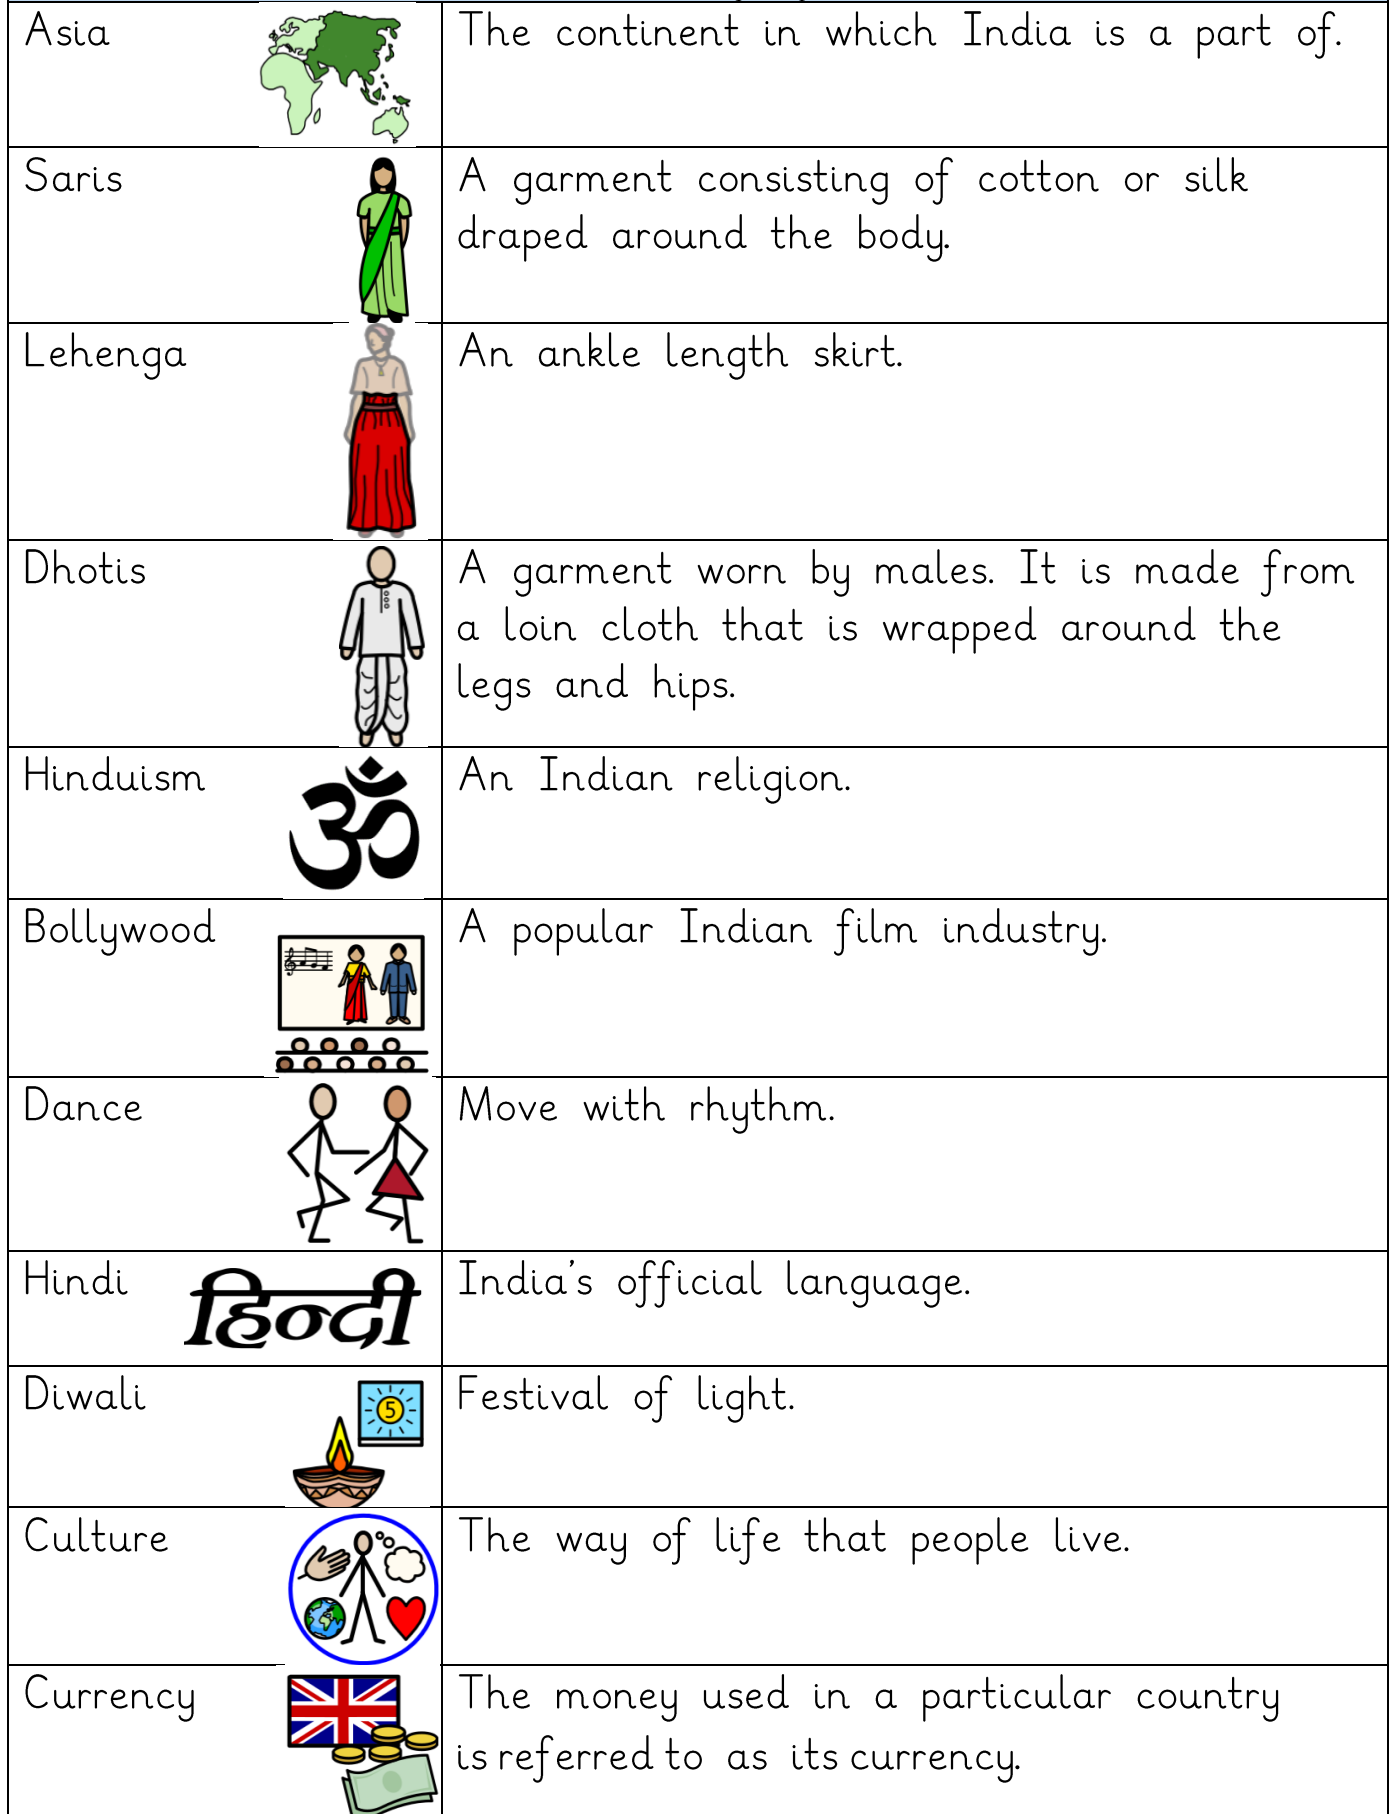 Asia
The continent in which India is a part of.
Saris
A garment consisting of cotton or silk
draped around the body.
Lehenga
An ankle length skirt.
Dhotis
A garment worn by males. It is made from
a loin cloth that is wrapped around the
legs and hips.
Hinduism
ॐ
An Indian religion.
Bollywood
A popular Indian film industry.
Dance
Move with rhythm.
Hindi
हिन्दी
India's official language.
Diwali
5
Festival of light.
Culture
The way of life that people live.
Currency
The money used in a particular country
is referred to as its currency.